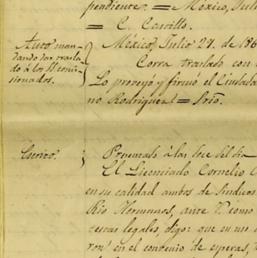 pendiente. = México, Juli
= C. Castillo.
Auto man-
dando dar trasla-
do á los
sionados.
México, Julio 27. de 186
Corra traslado con
Lo proveyó y firmó el Ciudada
no Rodriguez. = Srio.
Presentado á las doce del dia
El Licenciado Cornelio
en su calidad ambos de Síndicos
Rio Hermanos, ante V. como
cesas legales, digo: que en un
ron en el convenio de esperas,